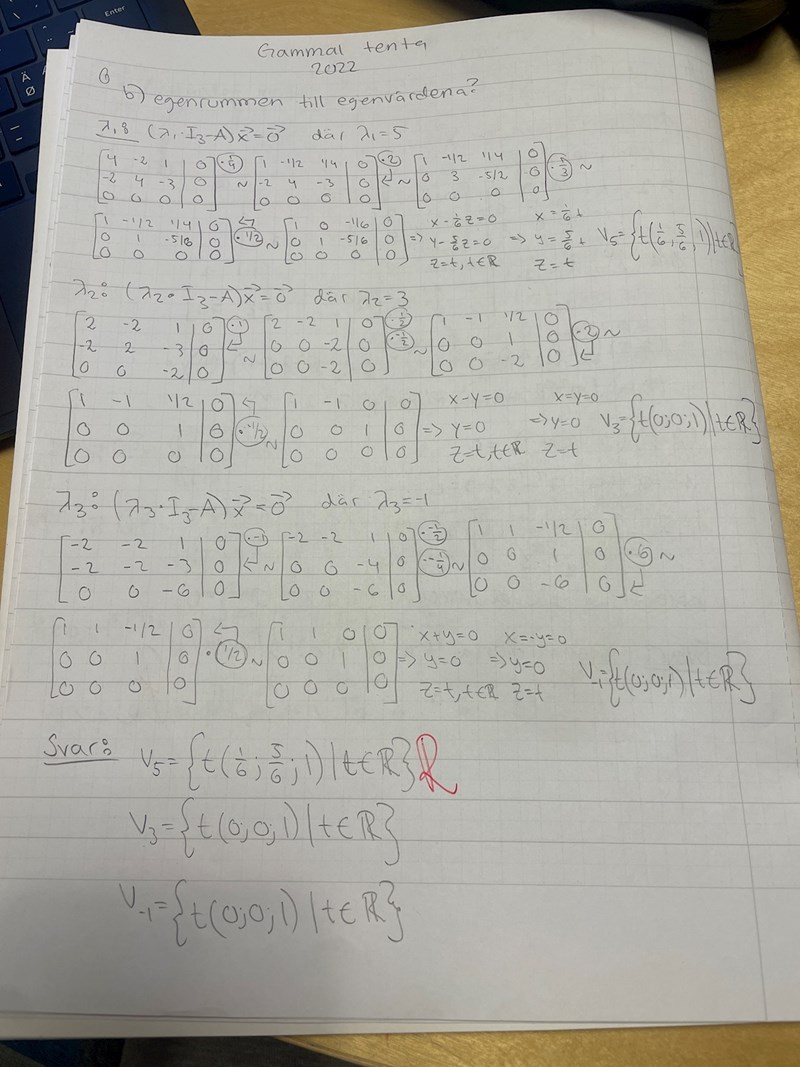 Enter
Ä
Ø
Gammal tenta
2022
b) egenrummen till egenvärdena?
λ₁: (λ₁·I₃-A)x⃗=0⃗ där λ₁=5
[4 -2 1 | 0; -2 4 -3 | 0; 0 0 0 | 0] ·¼ ~ [1 -1/2 1/4 | 0; -2 4 -3 | 0; 0 0 0 | 0] ·2 ~ [1 -1/2 1/4 | 0; 0 3 -5/2 | 0; 0 0 0 | 0] ·⅓ ~
[1 -1/2 1/4 | 0; 0 1 -5/6 | 0; 0 0 0 | 0] ·1/2 ~ [1 0 -1/6 | 0; 0 1 -5/6 | 0; 0 0 0 | 0] => x-1/6z=0 y-5/6z=0 z=t, t∈ℝ => x=1/6t y=5/6t z=t V₅={t(1/6; 5/6; 1)|t∈ℝ}
λ₂: (λ₂·I₃-A)x⃗=0⃗ där λ₂=3
[2 -2 1 | 0; -2 2 -3 | 0; 0 0 -2 | 0] ·1 ~ [2 -2 1 | 0; 0 0 -2 | 0; 0 0 -2 | 0] ·1/2 ·-1/2 ~ [1 -1 1/2 | 0; 0 0 1 | 0; 0 0 -2 | 0] ·2 ~
[1 -1 1/2 | 0; 0 0 1 | 0; 0 0 0 | 0] ·-1/2 ~ [1 -1 0 | 0; 0 0 1 | 0; 0 0 0 | 0] => x-y=0 y=0 z=t, t∈ℝ => x=y=0 y=0 z=t V₃={t(0;0;1)|t∈ℝ}
λ₃: (λ₃·I₃-A)x⃗=0⃗ där λ₃=-1
[-2 -2 1 | 0; -2 -2 -3 | 0; 0 0 -6 | 0] ·-1 ~ [-2 -2 1 | 0; 0 0 -4 | 0; 0 0 -6 | 0] ·-1/2 ·-1/4 ~ [1 1 -1/2 | 0; 0 0 1 | 0; 0 0 -6 | 0] ·6 ~
[1 1 -1/2 | 0; 0 0 1 | 0; 0 0 0 | 0] ·1/2 ~ [1 1 0 | 0; 0 0 1 | 0; 0 0 0 | 0] => x+y=0 y=0 z=t, t∈ℝ => x=-y=0 y=0 z=t V₋₁={t(0;0;1)|t∈ℝ}
Svar: V₅={t(1/6; 5/6; 1)|t∈ℝ} R
V₃={t(0;0;1)|t∈ℝ}
V₋₁={t(0;0;1)|t∈ℝ}